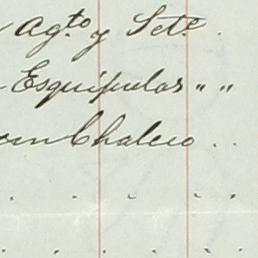 Agto y Sete.
Esquipulas " "
un Chaleco . .